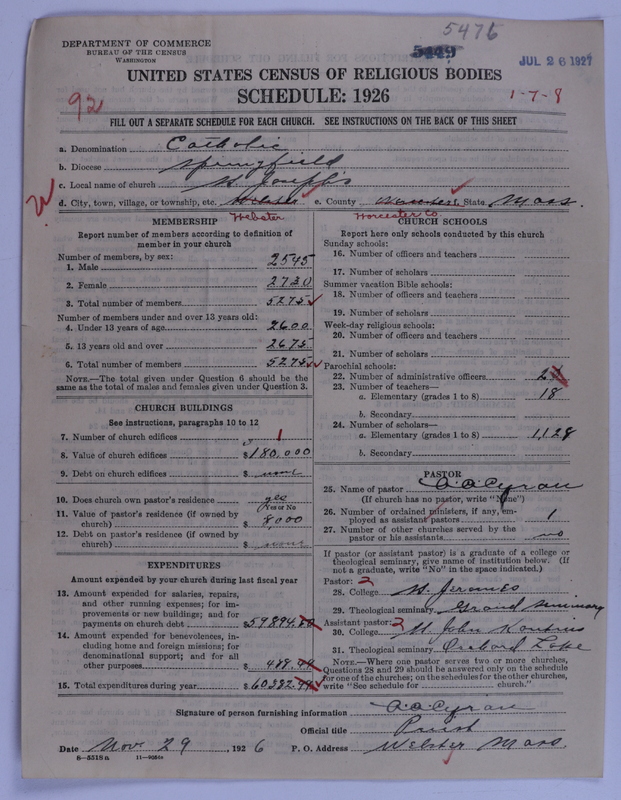 5476
DEPARTMENT OF COMMERCE
BUREAU OF THE CENSUS
WASHINGTON
5449
JUL 26 1927
UNITED STATES CENSUS OF RELIGIOUS BODIES
SCHEDULE: 1926
92
1-7-8
FILL OUT A SEPARATE SCHEDULE FOR EACH CHURCH. SEE INSTRUCTIONS ON THE BACK OF THIS SHEET
a. Denomination Catholic
b. Diocese Springfield
c. Local name of church St Joseph's
d. City, town, village, or township, etc. Webster e. County Worcester State Mass.
Webster Worcester Co.
MEMBERSHIP
Report number of members according to definition of
member in your church
Number of members, by sex:
1. Male 2545
2. Female 2730
3. Total number of members 5275
Number of members under and over 13 years old:
4. Under 13 years of age 2600
5. 13 years old and over 2675
6. Total number of members 5275
NOTE.—The total given under Question 6 should be
same as the total of males and females given under Question 3.
CHURCH BUILDINGS
See instructions, paragraphs 10 to 12
7. Number of church edifices 1
8. Value of church edifices $180,000
9. Debt on church edifices $ none
10. Does church own pastor's residence yes
Yes or No
11. Value of pastor's residence (if owned by
church) $ 8,000
12. Debt on pastor's residence (if owned by
church) $ none
EXPENDITURES
Amount expended by your church during last fiscal year
13. Amount expended for salaries, repairs,
and other running expenses; for im-
provements or new buildings; and for
payments on church debt $59894.
14. Amount expended for benevolences, in-
cluding home and foreign missions; for
denominational support; and for all
other purposes $ 488.
15. Total expenditures during year $ 60382.
CHURCH SCHOOLS
Report here only schools conducted by this church
Sunday schools:
16. Number of officers and teachers
17. Number of scholars
Summer vacation Bible schools:
18. Number of officers and teachers
19. Number of scholars
Week-day religious schools:
20. Number of officers and teachers
21. Number of scholars
Parochial schools:
22. Number of administrative officers 2
23. Number of teachers—
a. Elementary (grades 1 to 8) 18
b. Secondary
24. Number of scholars—
a. Elementary (grades 1 to 8) 1,128
b. Secondary
PASTOR
25. Name of pastor A.A. Cyran
(If church has no pastor, write "None")
26. Number of ordained ministers, if any, em-
ployed as assistant pastors 1
27. Number of other churches served by the
pastor or his assistants no
If pastor (or assistant pastor) is a graduate of a college or
theological seminary, give name of institution below. (If
not a graduate, write "No" in the space indicated.)
Pastor: 2
28. College St. Jeromes
29. Theological seminary Grand Seminary
Assistant pastor: 2
30. College St. John Kantius
31. Theological seminary Orchard Lake
NOTE.—Where one pastor serves two or more churches,
Questions 28 and 29 should be answered only on the schedule
for one of the churches; on the schedules for the other churches,
write "See schedule for church."
Signature of person furnishing information A.A. Cyran
Official title Priest
Date Nov. 29, 1926 P. O. Address Webster Mass.
8—5518a 11—9050a